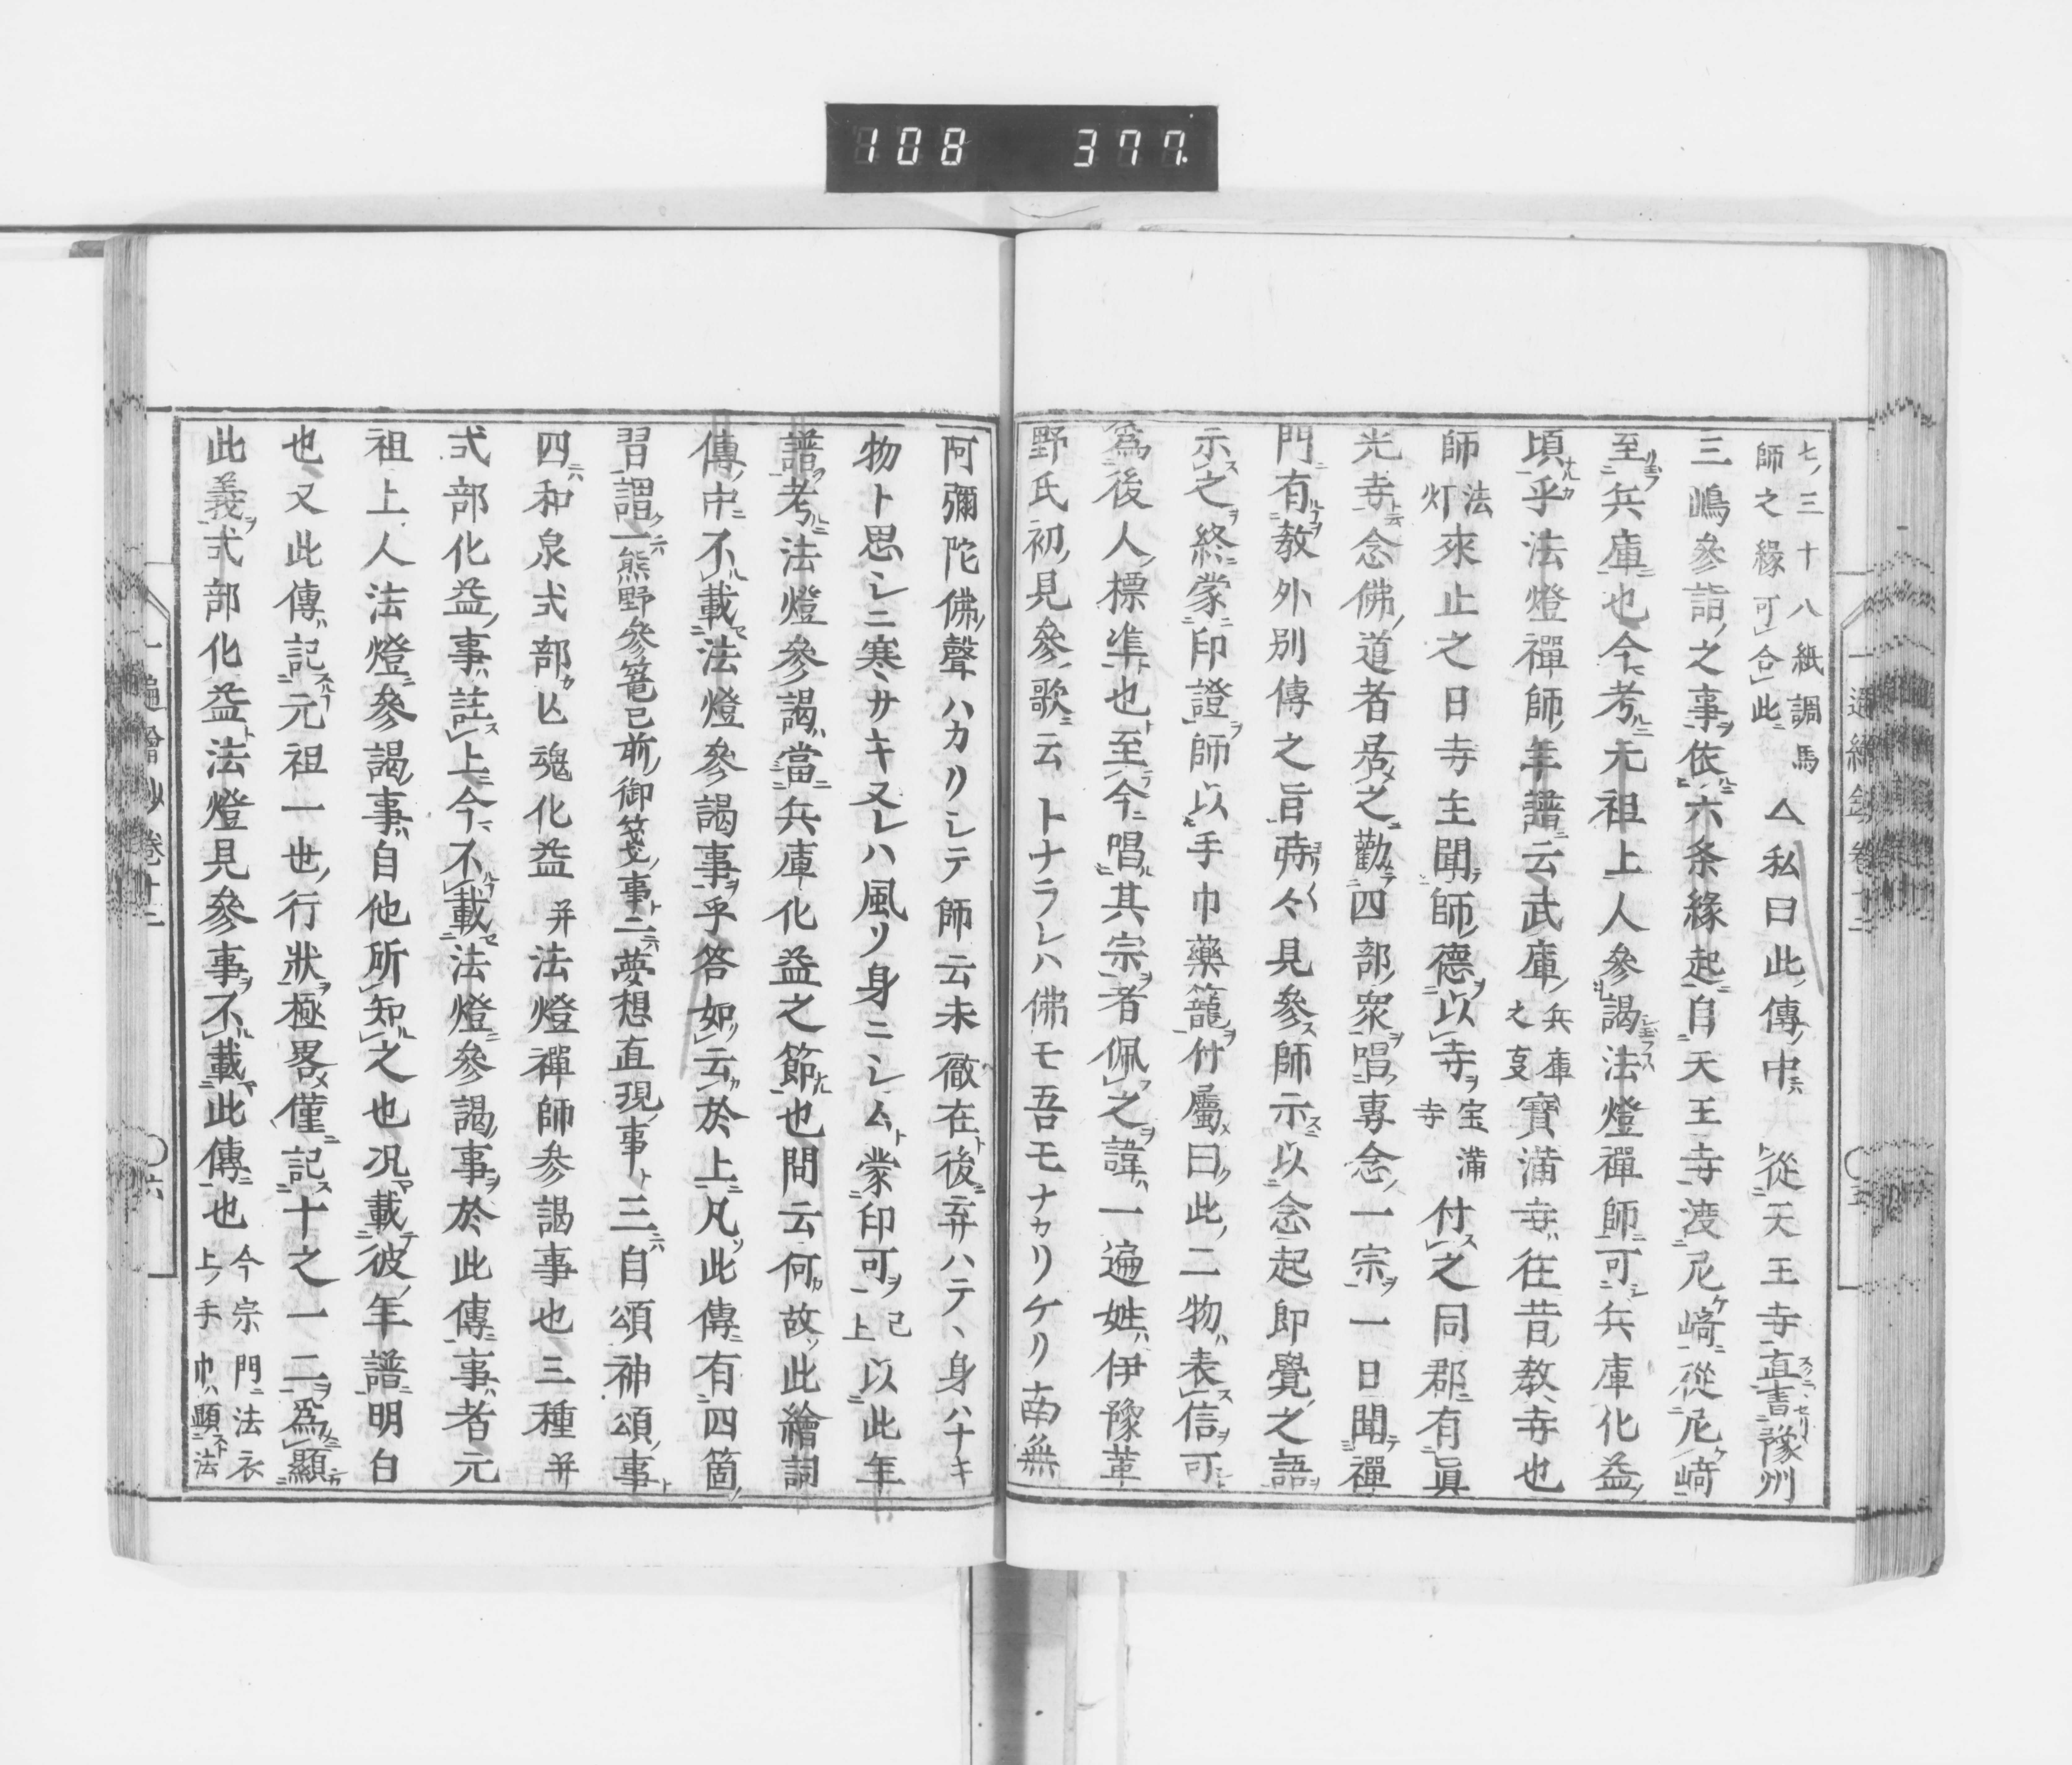 108 377
七ノ三十八紙調馬師之緣可合此ニ △私曰此ノ傳ノ中ニ 從天王寺直書豫州
三嶋參詣ノ之事ヲ依六条緣起ニ自天王寺渡尼﨑ニ從尼﨑
至兵庫ニ也今考ルニ元祖上人參謁法燈禪師ニ可兵庫化益ノ
頃乎法燈禪師ノ年譜ニ云武庫ノ兵庫之支寶滿寺ハ往昔教寺也
師法灯來止之日寺主聞師ノ德ヲ以寺ヲ宝滿寺付ス之同郡ニ有眞
光寺ト云念佛ノ道者居之勸四部ノ衆ヲ唱專念ノ一宗ヲ一日聞禪
門ニ有教外別傳之旨特々見參ス師示スニ以念起即覺ノ之語ヲ
示ス之ヲ終ニ蒙印證ヲ師以手巾藥籠ヲ付屬メ曰ク此ノ二物ハ表信ヲ可
爲後人ノ標準ト也至今ニ唱其宗ヲ者佩之ヲ諱ハ一遍姓ハ伊豫葦
野氏初ノ見參ノ歌ニ云 トナラレハ佛モ吾モナカリケリ南無
阿彌陀佛ノ聲ハカリシテ師云未徹在ト後ニ弃ハテヽ身ハナキ
物ト思シニ寒サキヌレハ風ソ身ニシムト蒙印可ヲ已上以此年
譜ヲ考ルニ法燈參謁ハ當兵庫化益之節ニ也問云何カ故ソ此繪詞
傳ノ中ニ不載法燈參謁事ヲ乎答如ノ云カ於上ニ凡ソ此傳ニ有四箇ノ
習謂ク一ニハ熊野參篭已前ノ御箋ノ事ト二ニハ夢想直現ノ事ト三ニハ自頌神頌ノ事ト
四ニハ和泉式部カ亾魂化益 并法燈禪師参謁事也三種并
式部化益ノ事ハ註ス上ニ今ハ不載法燈ニ參謁ノ事ヲ於此傳ニ事ハ者元
祖上人法燈ニ參謁ノ事ハ自他所知之也况載テ彼ノ年譜ニ明白
也又此傳ハ記元祖一世ノ行狀ヲ極畧メ僅ニ記ス十之一二ヲ爲顯
此義ヲ式部化益ト法燈見參事ヲ不載此傳ニ也今宗門ニ法衣上ノ手巾ハ顯法
一遍繪鈔卷十二 五
一遍繪抄卷十二 六